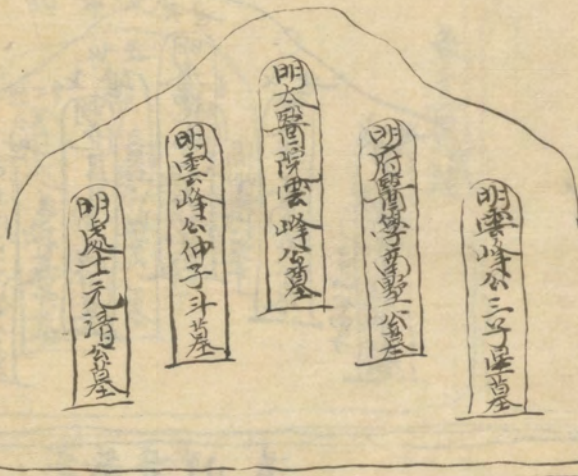 明雲峰公三子墓
明府醫學西墅公墓
明太醫院雲峰公墓
明雲峰公仲子斗墓
明處士元清公墓